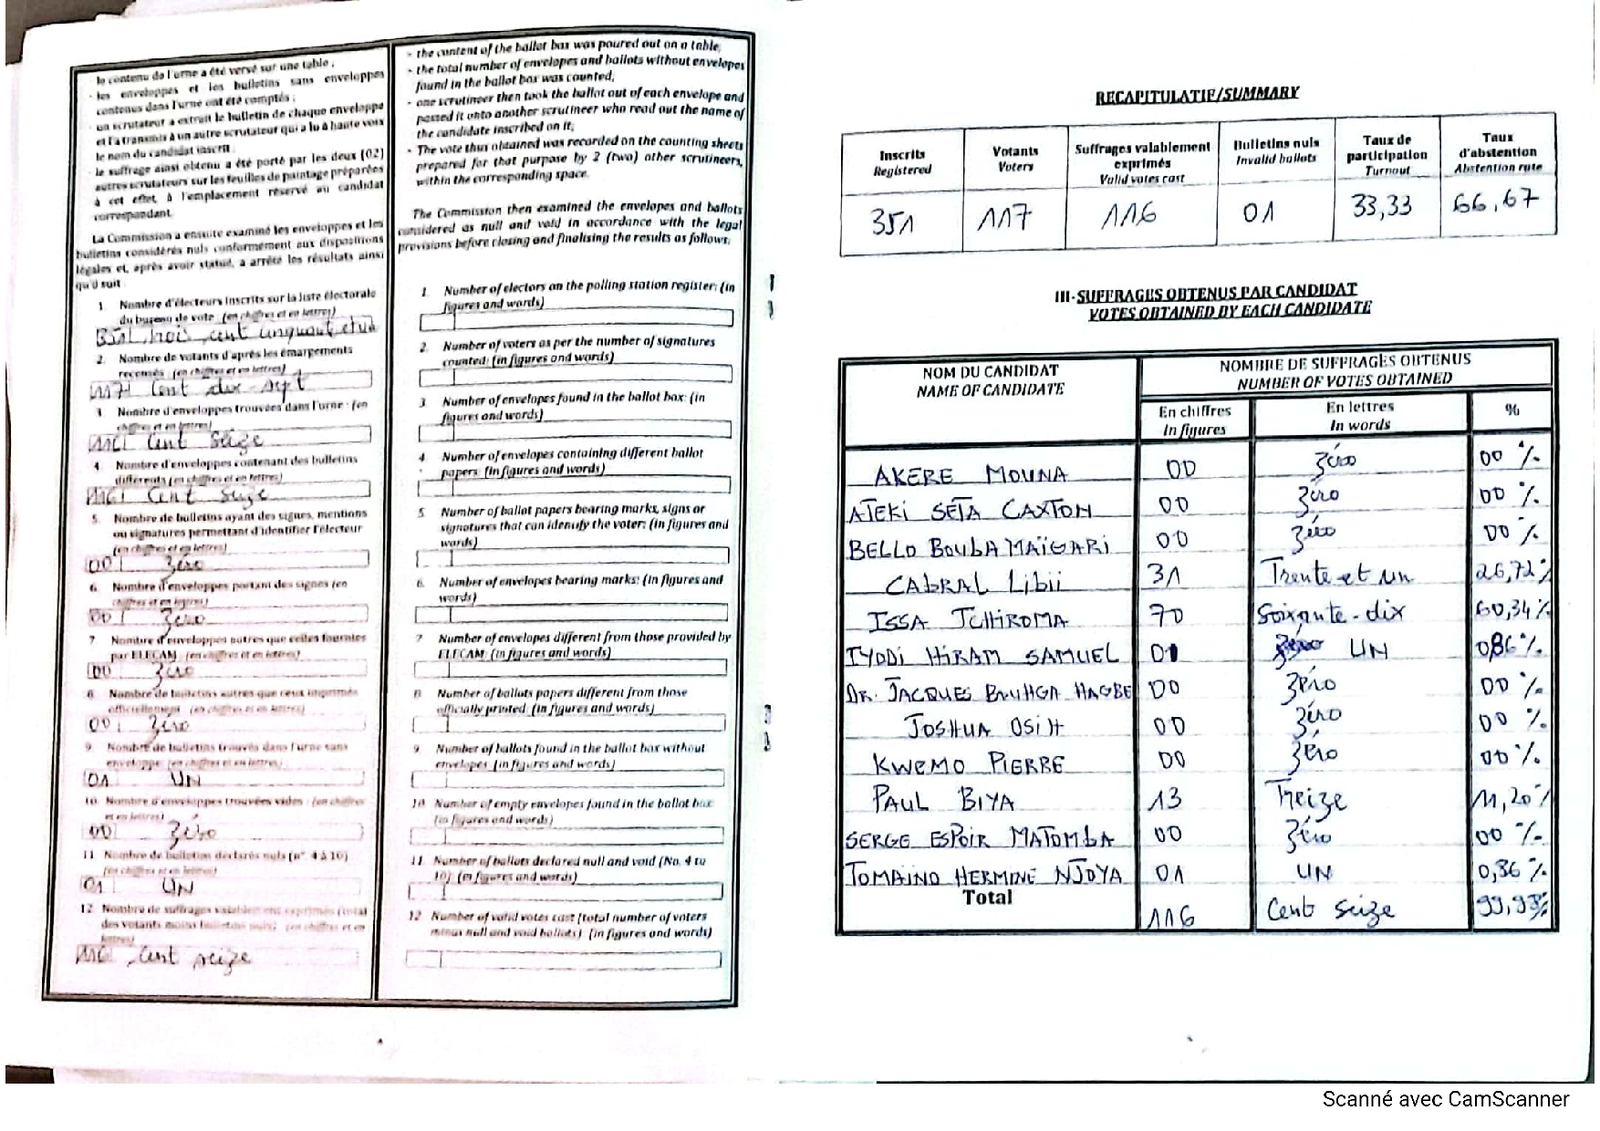 le contenu de l'urne a été versé sur une table ;
- les enveloppes et les bulletins sans enveloppes
contenus dans l'urne ont été comptés ;
un scrutateur a extrait le bulletin de chaque enveloppe
et l'a transmis à un autre scrutateur qui a lu à haute voix
le nom du candidat inscrit
- le suffrage ainsi obtenu a été porté par les deux (02)
autres scrutateurs sur les feuilles de pointage préparées
à cet effet, à l'emplacement réservé au candidat
correspondant.
La Commission a ensuite examiné les enveloppes et les
bulletins considérés nuls conformément aux dispositions
légales et, après avoir statué, a arrêté les résultats ainsi
qu'il suit
1. Nombre d'électeurs inscrits sur la liste électorale
du bureau de vote (en chiffres et en lettres)
351 trois cent cinquante et un
2. Nombre de votants d'après les émargements
recensés (en chiffres et en lettres)
117 Cent dix sept
3 Nombre d'enveloppes trouvées dans l'urne : (en
chiffres et en lettres)
116 Cent Seize
4 Nombre d'enveloppes contenant des bulletins
différents (en chiffres et en lettres)
116 Cent Seize
5. Nombre de bulletins ayant des signes, mentions
ou signatures permettant d'identifier l'électeur
(en chiffres et en lettres)
00 Zéro
6. Nombre d'enveloppes portant des signes (en
chiffres et en lettres)
00 Zéro
7 Nombre d'enveloppes autres que celles fournies
par ELECAM (en chiffres et en lettres)
00 Zéro
8 Nombre de bulletins autres que ceux imprimés
officiellement (en chiffres et en lettres)
00 Zéro
9. Nombre de bulletins trouvés dans l'urne sans
enveloppe (en chiffres et en lettres)
01 UN
10. Nombre d'enveloppes trouvées vides (en chiffres
et en lettres)
00 Zéro
11 Nombre de bulletins déclarés nuls (n° 4 à 10)
(en chiffres et en lettres)
01 UN
12 Nombre de suffrages valablement exprimés (total
des votants moins bulletins nuls) (en chiffres et en
lettres)
116 Cent seize
- the content of the ballot box was poured out on a table,
- the total number of envelopes and ballots without envelopes
found in the ballot box was counted;
- one scrutineer then took the ballot out of each envelope and
passed it onto another scrutineer who read out the name of
the candidate inscribed on it;
- The vote thus obtained was recorded on the counting sheets
prepared for that purpose by 2 (two) other scrutineers,
within the corresponding space.
The Commission then examined the envelopes and ballots
considered as null and void in accordance with the legal
provisions before closing and finalising the results as follows:
1 Number of electors on the polling station register: (in
figures and words)
2. Number of voters as per the number of signatures
counted: (in figures and words)
3 Number of envelopes found in the ballot box: (in
figures and words)
4 Number of envelopes containing different ballot
papers: (in figures and words)
5 Number of ballot papers bearing marks, signs or
signatures that can identify the voter: (in figures and
words)
6 Number of envelopes bearing marks: (in figures and
words)
7 Number of envelopes different from those provided by
ELECAM: (in figures and words)
8 Number of ballots papers different from those
officially printed: (in figures and words)
9 Number of ballots found in the ballot box without
envelopes (in figures and words)
10 Number of empty envelopes found in the ballot box
(in figures and words)
11 Number of ballots declared null and void (No. 4 to
10): (in figures and words)
12 Number of valid votes cast (total number of voters
minus null and void ballots) (in figures and words)
RECAPITULATIF/SUMMARY
Inscrits Registered
Votants Voters
Suffrages valablement exprimés Valid votes cast
Bulletins nuls Invalid ballots
Taux de participation Turnout
Taux d'abstention Abstention rate
351 117 116 01 33,33 66,67
III-SUFFRAGES OBTENUS PAR CANDIDAT
VOTES OBTAINED BY EACH CANDIDATE
NOM DU CANDIDAT
NAME OF CANDIDATE
NOMBRE DE SUFFRAGES OBTENUS
NUMBER OF VOTES OBTAINED
En chiffres In figures
En lettres In words
%
AKERE MOUNA 00 zéro 00 %
ATEKI SETA CAXTON 00 zéro 00 %
BELLO BOUBA MAÏGARI 00 zéro 00 %
CABRAL Libii 31 Trente et un 26,72%
ISSA TCHIROMA 70 Soixante-dix 60,34%
IYODI HIRAM SAMUEL 01 UN 0,86%
DR. JACQUES BOUHGA HAGBE 00 zéro 00 %
JOSHUA OSIH 00 zéro 00 %
KWEMO PIERRE 00 zéro 00 %
PAUL BIYA 13 Treize 11,20%
SERGE ESPOIR MATOMBA 00 zéro 00 %
TOMAINO HERMINE NJOYA 01 UN 0,86 %
Total 116 Cent seize 99,99%
Scanné avec CamScanner